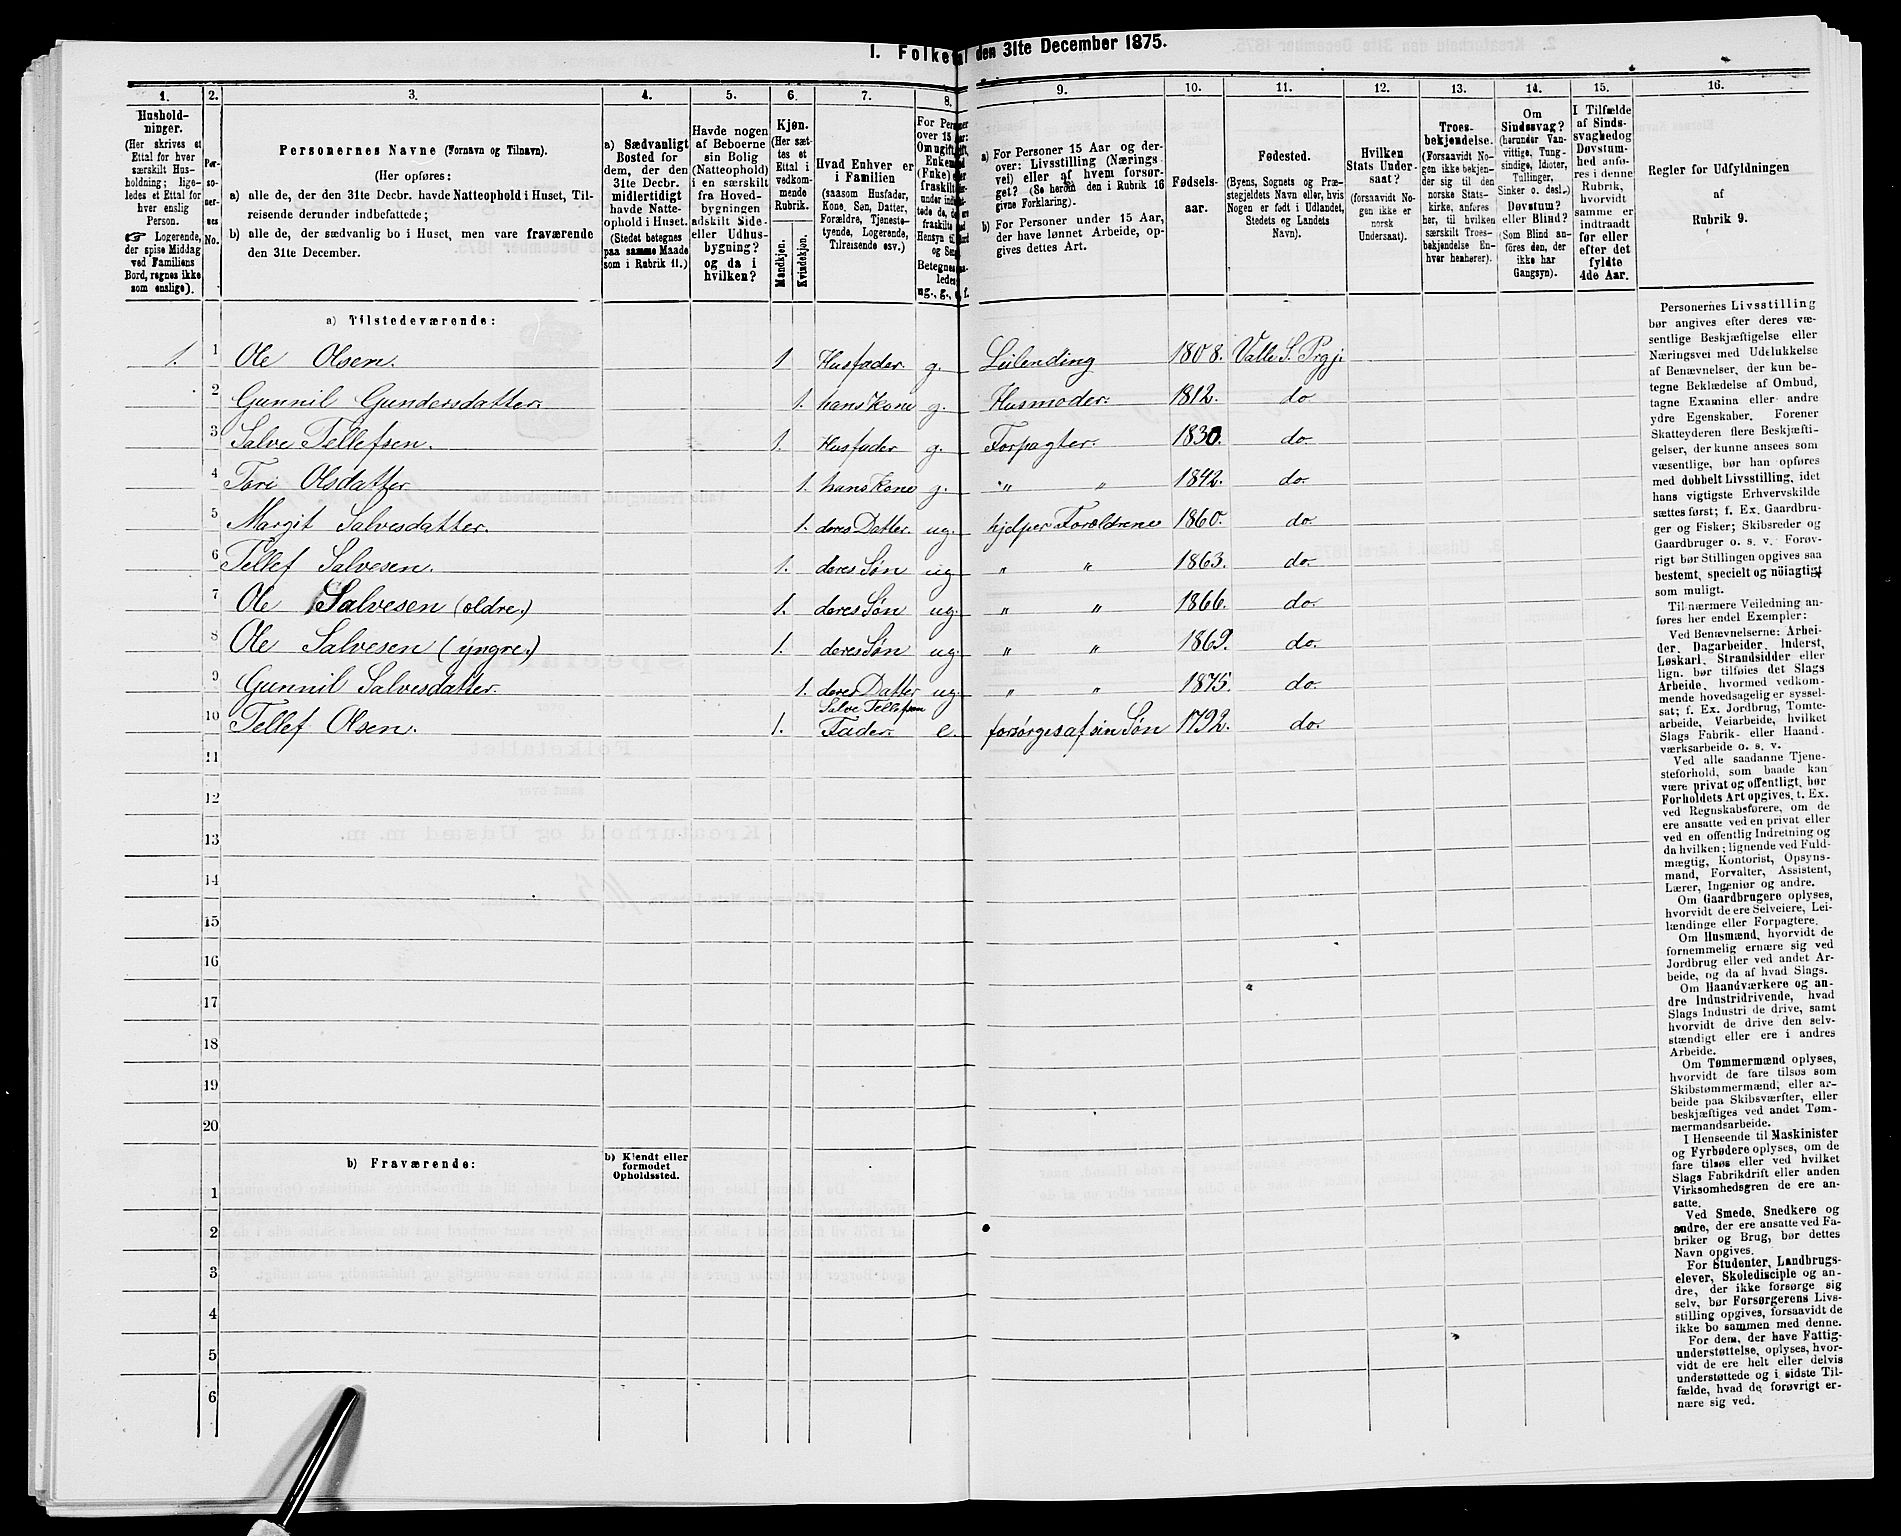 1. Folketal den 31te December 1875.
1. 2. 3. 4. 5. 6. 7. 8. 9. 10. 11. 12. 13. 14. 15. 16.
Hushold-
ninger.
(Her skrives et
Ettal for hver
særskilt Hus-
holdning; lige-
ledes et Ettal for
hver enslig
Person.
☞ Logerende,
der spise Middag
ved Familiens
Bord, regnes ikke
som enslige).
Per-
so-
ner-
nes
No.
Personernes Navne (Fornavn og Tilnavn).
(Her opføres:
a) alle de, der den 31te Decbr. havde Natteophold i Huset, Til-
reisende derunder indbefattede;
b) alle de, der sædvanlig bo i Huset, men vare fraværende
den 31te December.
a) Sædvanligt
Bosted for
dem, der den
31te Decbr.
midlertidigt
havde Natte-
ophold i Huset.
(Stedet betegnes
paa samme Maade
som i Rubrik 11.)
Havde nogen
af Beboerne
sin Bolig
(Natteophold)
i en særskilt
fra Hoved-
bygningen
adskilt Side-
eller Udhus-
bygning?
og da i
hvilken?
Kjøn.
(Her sæt-
tes et
Ettal i
vedkom-
mende
Rubrik.
Mandkjøn.
Kvindekjøn.
Hvad Enhver er
i Familien
(saasom Husfader,
Kone, Søn, Datter,
Forældre, Tjeneste-
tyende, Logerende,
Tilreisende osv.)
For Personer
over 15 Aar:
Om ugift, gift,
Enkemand
(Enke) eller
fraskilt
a) For Personer 15 Aar og der-
over: Livsstilling (Nærings
vei) eller af hvem forsør-
get? (Se herom den i Rubrik 16
givne Forklaring).
b) For Personer under 15 Aar,
der have lønnet Arbeide, op-
gives dettes Art.
Fødsels-
aar.
Fødested.
(Byens, Sognets og Præ-
stegjeldets Navn eller, hvis
Nogen er født i Udlandet,
Stedets og Landets
Navn).
Hvilken
Stats Under-
saat?
(forsaavidt No-
gen ikke er
norsk
Undersaat).
Troes-
bekjendelse.
(Forsaavidt No-
gen ikke bekjen-
der sig til den
norske Stats-
kirke, anføres
her, til hvilken
særskilt Troes-
bekjendelse En-
hver henhører).
Om
Sindssvag?
(herunder Van-
vittige, Tung-
sindige, Idioter,
Tullinger,
Sinker o. desl.)
Døvstum?
eller Blind?
(Som Blind an-
føres den, der
ikke har
Gangsyn).
I Tilfælde
af Sinds-
svaghed og
Døvstum-
hed anfø-
res i denne
Rubrik,
hvorvidt
samme er
indtraadt
før eller
efter det
fyldte
4de Aar.
Regler for Udfyldningen
af
Rubrik 9.
a) Tilstedeværende:
1. 1 Ole Olsen. 1 Husfader. g. Leilending 1808. Valle S. Prgj.
2 Gunnil Gundersdatter. 1. hans Kone g. Husmoder. 1812. do
3 Salve Tellefsen. 1. Husfader g. Forpagter. 1830. do.
4 Tori Olsdatter 1. hans Kone g. " " 1842. do.
5 Margit Salvesdatter. 1. deres Datter. ug. hjelper Forældrene 1860. do.
6 Tellef Salvesen. 1. deres Søn ug " " 1863. do.
7 Ole Salvesen (ældre.) 1. deres Søn ug. " " 1866. do.
8 Ole Salvesen (yngre.) 1. deres Søn ug. " " 1869. do.
9 Gunnil Salvesdatter. 1. deres Datter ug. " " 1875. do.
10 Tellef Olsen. 1. Salve Tellefsen Fader. e. forsørges af sin Søn 1792. do.
11
12
13
14
15
16
17
18
19
20
b) Fraværende:
b) Kjendt eller
formodet
Opholdssted.
1
2
3
4
5
6
Personernes Livsstilling
bør angives efter deres væ-
sentlige Beskjæftigelse eller
Næringsvei med Udelukkelse
af Benævnelser, der kun be-
tegne Beklædelse af Ombud,
tagne Examina eller andre
ydre Egenskaber. Forener
Skatteyderen flere Beskjæfti-
gelser, der kunne ansees som
væsentlige, bør han opføres
med dobbelt Livsstilling, idet
hans vigtigste Erhvervskilde
sættes først; f. Ex. Gaardbru-
ger og Fisker; Skibsreder og
Gaardbruger o. s. v. Forøv-
rigt bør Stillingen opgives saa
bestemt, specielt og nøiagtigt
som muligt.
Til nærmere Veiledning an-
føres her endel Exempler:
Ved Benævnelserne: Arbei-
der, Dagarbeider, Inderst,
Løskarl, Strandsidder eller
lign. bør tilføies det Slags
Arbeide, hvormed vedkom-
mende hovedsagelig er syssel-
sat; f. Ex. Jordbrug, Tomte-
arbeide, Veiarbeide, hvilket
Slags Fabrik- eller Haand
værksarbeide o. s. v.
Ved alle saadanne Tjene-
steforhold, som baade kan
være privat og offentligt, bør
Forholdets Art opgives, t. Ex.
ved Regnskabsførere, om de
ere ansatte ved en privat eller
ved en offentlig Indretning og
da hvilken; lignende ved Fuld-
mægtig, Kontorist, Opsyns-
mand, Forvalter, Assistent,
Lærer, Ingeniør og andre.
Om Gaardbrugere oplyses,
hvorvidt de ere Selveiere, Lei-
lændinge eller Forpagtere.
Om Husmænd, hvorvidt de
fornemmelig ernære sig ved
Jordbrug eller ved andet Ar-
beide, og da af hvad Slags.
Om Haandværkere og an-
dre Industridrivende, hvad
Slags Industri de drive, samt
hvorvidt de drive den selv-
stændigt eller ere i andres
Arbeide.
Om Tømmermænd oplyses,
hvorvidt de fare tilsøs som
Skibstømmermænd, eller ar-
beide paa Skibsværfter, eller
beskjæftiges ved andet Tøm-
mermandsarbeide.
I Henseende til Maskinister
og Fyrbødere oplyses, om de
fare tilsøs eller ved hvilket
Slags Fabrikdrift eller anden
Virksomhedsgren de ere an-
satte.
Ved Smede, Snedkere og
andre, der ere ansatte ved Fa-
briker og Brug, bør dettes
Navn opgives.
For Studenter, Landbrugs-
elever, Skoledisciple og an-
dre, der ikke forsørge sig
selv, bør Forsørgerens Livs-
stilling opgives, forsaavidt de
ikke bo sammen med denne.
For dem, der have Fattig-
understøttelse, oplyses, hvor-
vidt de ere helt eller delvis
understøttede og i sidste Til-
fælde, hvad de forøvrigt er-
nære sig ved.